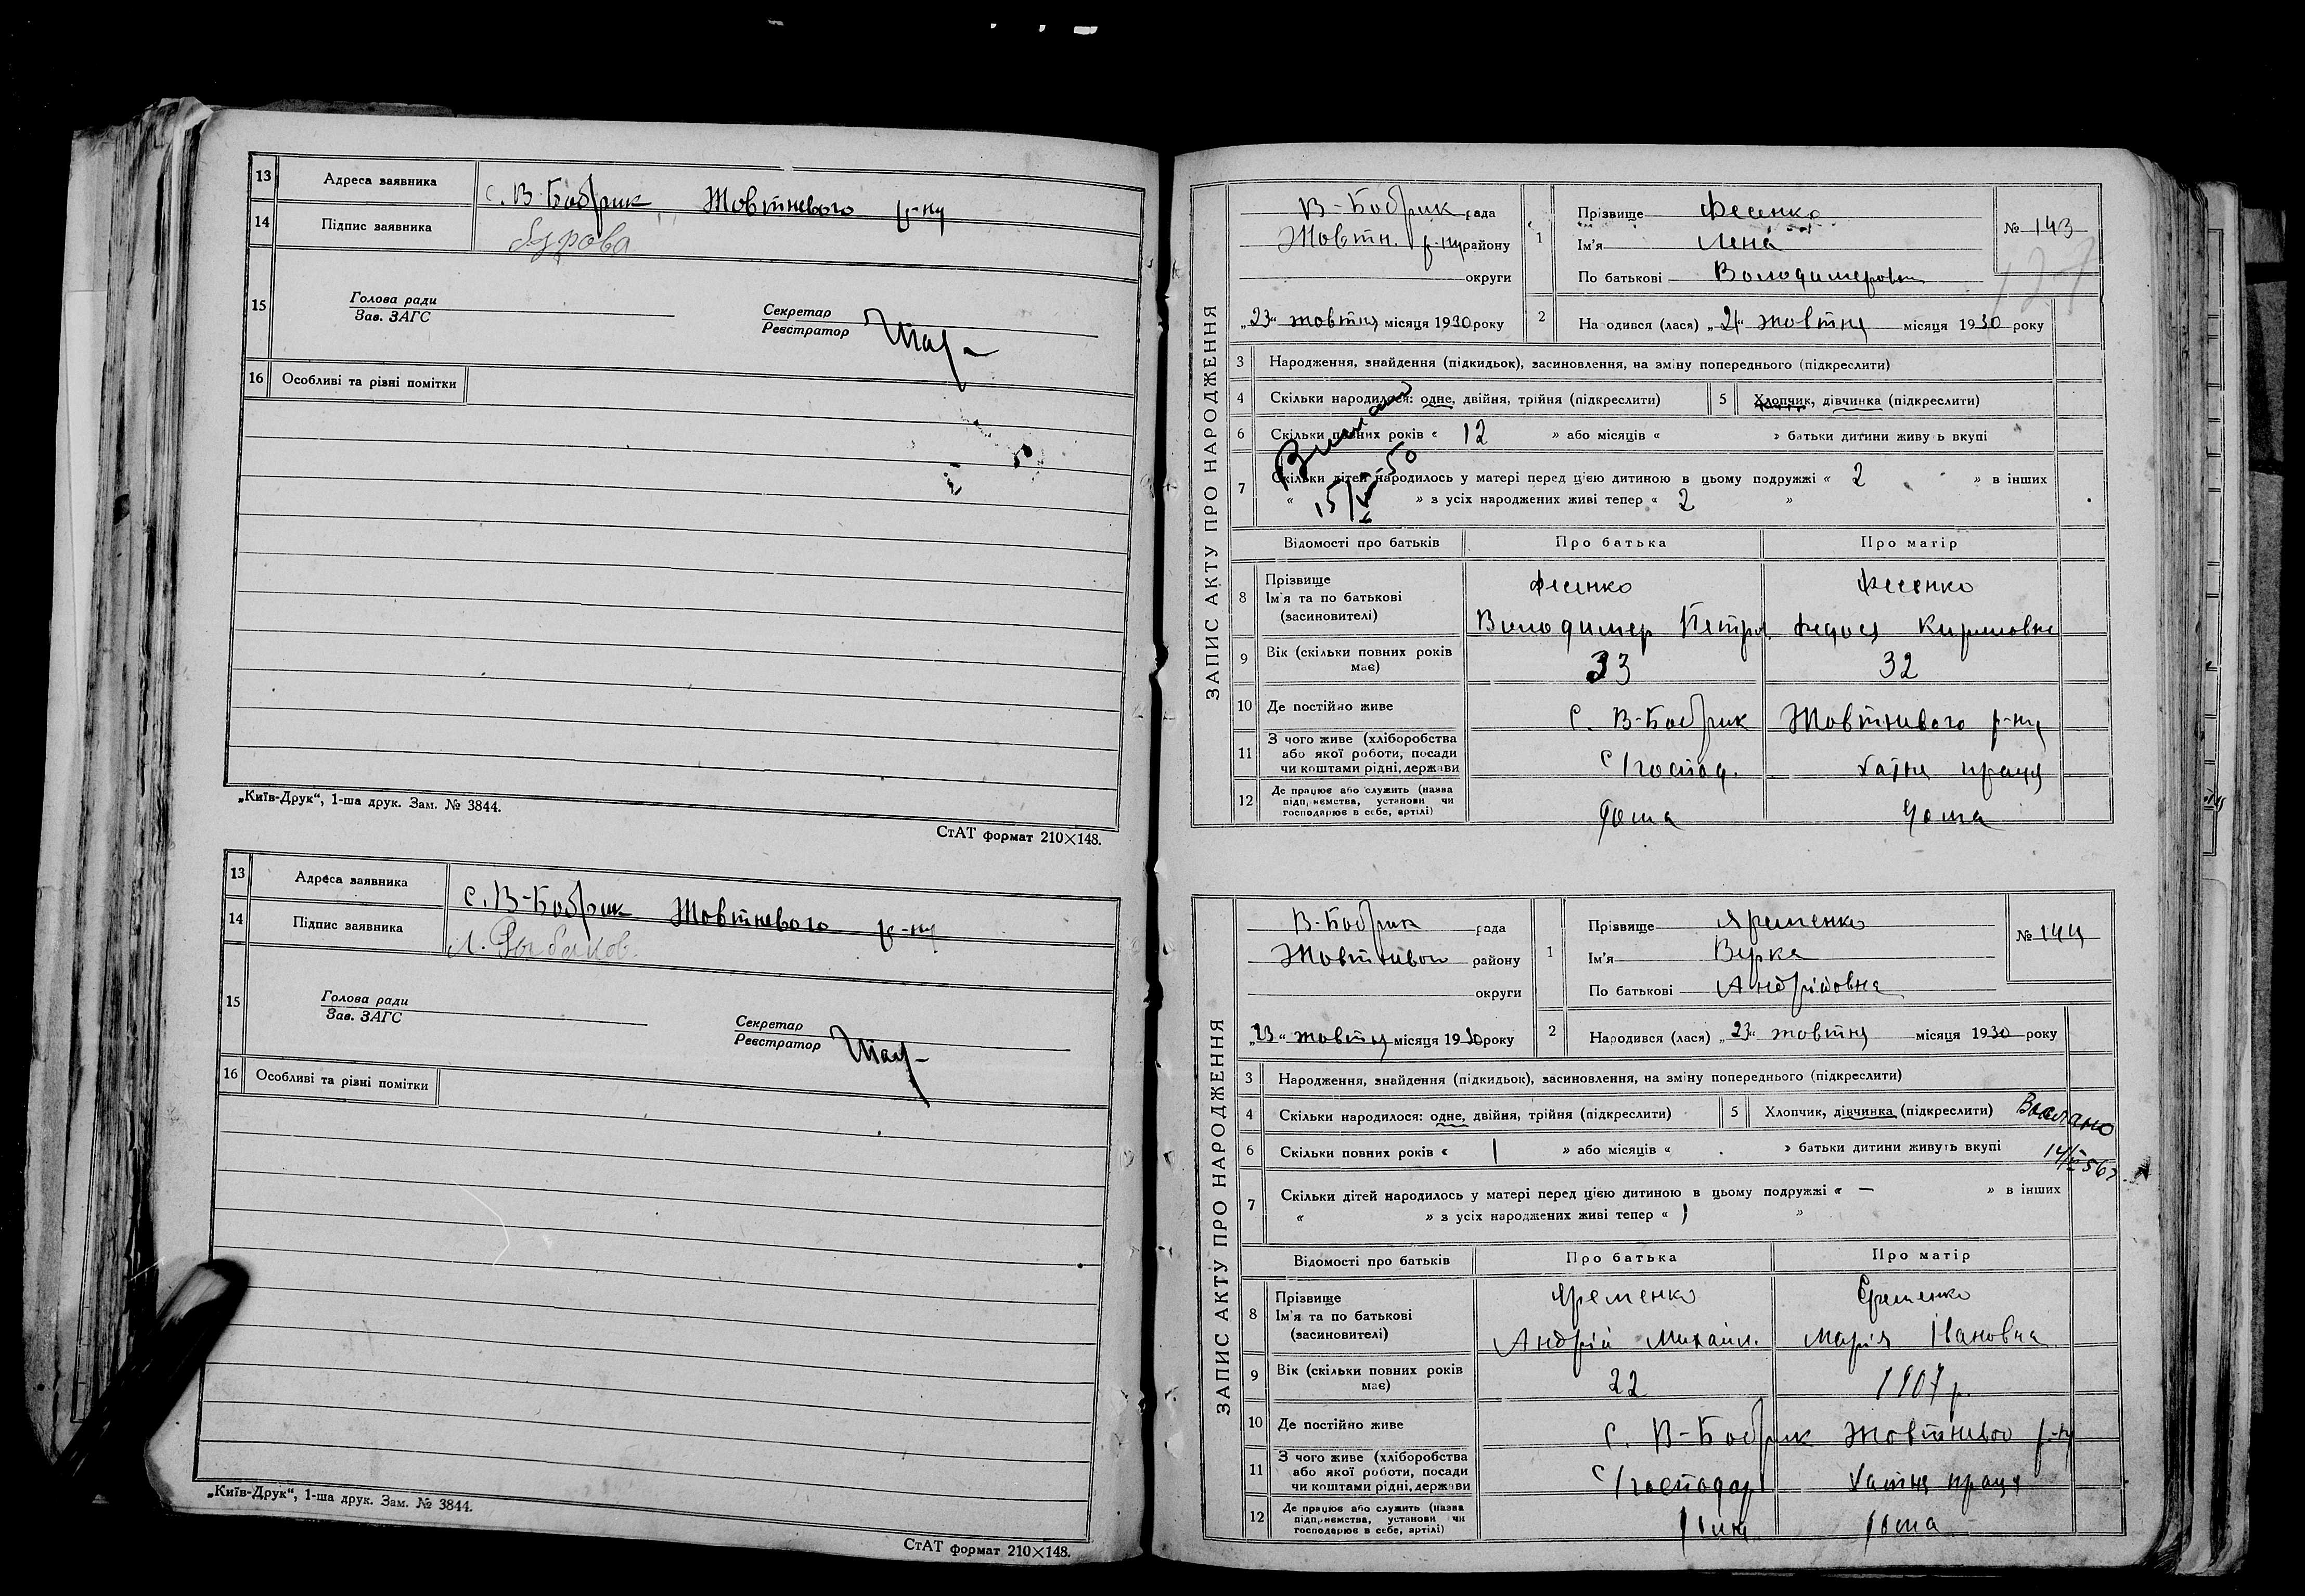 13 Адреса заявника с. В-Бобрик Жовтневого р-ну
14 Підпис заявника
15 Голова ради
Зав. ЗАГС
Секретар
Реєстратор
16 Особливі та різні помітки
„Київ-Друк“, 1-ша друк. Зам. № 3844.
СтАТ формат 210×148.
13 Адреса заявника с. В-Бобрик Жовтневого р-ну
14 Підпис заявника
15 Голова ради
Зав. ЗАГС
Секретар
Реєстратор
16 Особливі та різні помітки
„Київ-Друк“, 1-ша друк. Зам. № 3844.
СтАТ формат 210×148.
ЗАПИС АКТУ ПРО НАРОДЖЕННЯ
В-Бобрик рада
Жовтн. р-ну району
округи
„23“ жовтня місяця 1930 року
1 Прізвище Фесенко
Ім'я Лена
По батькові
№ 143
127
2 На одився (лася) „21“ жовтня місяця 1930 року
3 Народження, знайдення (підкидьок), засиновлення, на зміну попереднього (підкреслити)
4 Скільки народилося: одне, двійня, трійня (підкреслити) 5 Хлопчик, дівчинка (підкреслити)
6 Скільки повних років « 12 » або місяців « » батьки дитини живуть вкупі
7 Скільки дітей народилось у матері перед цією дитиною в цьому подружжі « 2 » в інших
« » з усіх народжених живі тепер « 2 »
Відомості про батьків Про батька Про матір
8 Прізвище
Ім'я та по батькові
(засновителі)
Фесенко Фесенко
Володимер Петро Федося Кириловна
9 Вік (скільки повних років має) 33 32
10 Де постійно живе с. В-Бобрик Жовтневого р-ну
11 З чого живе (хліборобства
або якої роботи, посади
чи коштами рідні, держави
С/господ. Хатня праця
12 Де працює або служить (назва
підприємства, установи чи
господарює в себе, артілі)
Дома Дома
ЗАПИС АКТУ ПРО НАРОДЖЕННЯ
В-Бобрик рада
Жовтнвого району
округи
„23“ жовтня місяця 1930 року
1 Прізвище Яременко
Ім'я Вірка
По батькові Андрійовна
№ 144
2 Народився (лася) „23“ жовтня місяця 1930 року
3 Народження, знайдення (підкидьок), засиновлення, на зміну попереднього (підкреслити)
4 Скільки народилося: одне, двійня, трійня (підкреслити) 5 Хлопчик, дівчинка (підкреслити)
6 Скільки повних років « 1 » або місяців « » батьки дитини живуть вкупі
7 Скільки дітей народилось у матері перед цією дитиною в цьому подружжі « — » в інших
« » з усіх народжених живі тепер « 1 »
Відомості про батьків Про батька Про матір
8 Прізвище
Ім'я та по батькові
(засиновителі)
Яременко Єременко
Андрій Михайл. Марія Івановна
9 Вік (скільки повних років має) 22 1907 р.
10 Де постійно живе с. В-Бобрик Жовтнвого р-ну
11 З чого живе (хліборобства
або якої роботи, посади
чи коштами рідні, держави
С/господар Хатня праця
12 Де працює або служить (назва
підприємства, установи чи
господарює в себе, артілі)
Дома